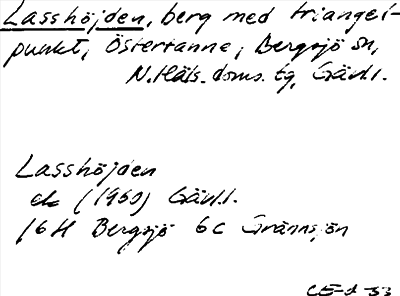 Lasshöjden, berg med triangel-
punkt, Östertanne, Bergsjö sn,
N. Häls. doms. tg, Gävl.l.
Lasshöjden
ek (1960) Gävl.l.
16H Bergsjö 6c Grännsjön